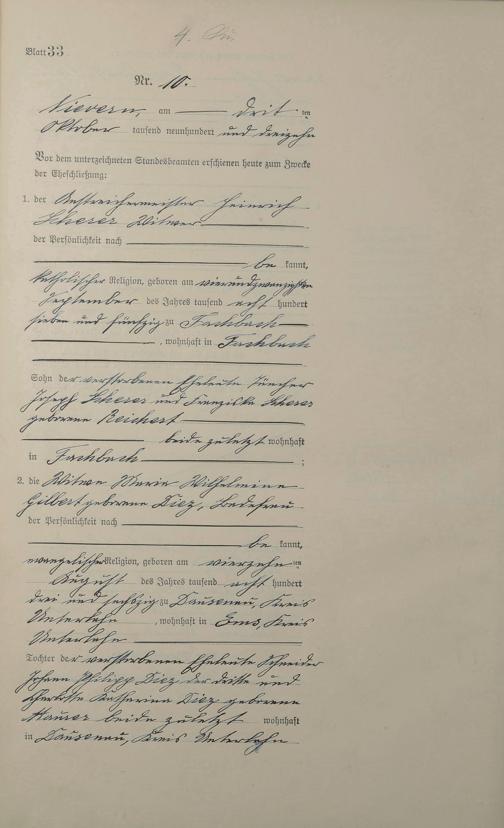 4.
Blatt 33
Nr. 10.
Nievern, am drit ten
Oktober tausend neunhundert und dreizehn
Vor dem unterzeichneten Standesbeamten erschienen heute zum Zwecke
der Eheschließung:
1. der Anstreichermeister Heinrich
Scherer Witwer
der Persönlichkeit nach
be kannt,
katholischer Religion, geboren am vierundzwanzigsten
September des Jahres tausend acht hundert
sieben und fünfzig zu Fachbach
, wohnhaft in Fachbach
Sohn der verstorbenen Eheleute Tüncher
Joseph Scherer und Franziska Scherer
geborene Reichert
beide zuletzt wohnhaft
in Fachbach ;
2. die Witwe Maria Wilhelmine
Gilbert geborene Diez, Badefrau
der Persönlichkeit nach
be kannt,
evangelischer Religion, geboren am vierzehn ten
August des Jahres tausend acht hundert
drei und sechzig zu Dausenau, Kreis
Unterlahn , wohnhaft in Ems, Kreis
Unterlahn
Tochter der verstorbenen Eheleute Schneider
Johann Philipp Diez der dritte und
Katharina Diez geborene
Hauser beide zuletzt wohnhaft
in Dausenau, Kreis Unterlahn